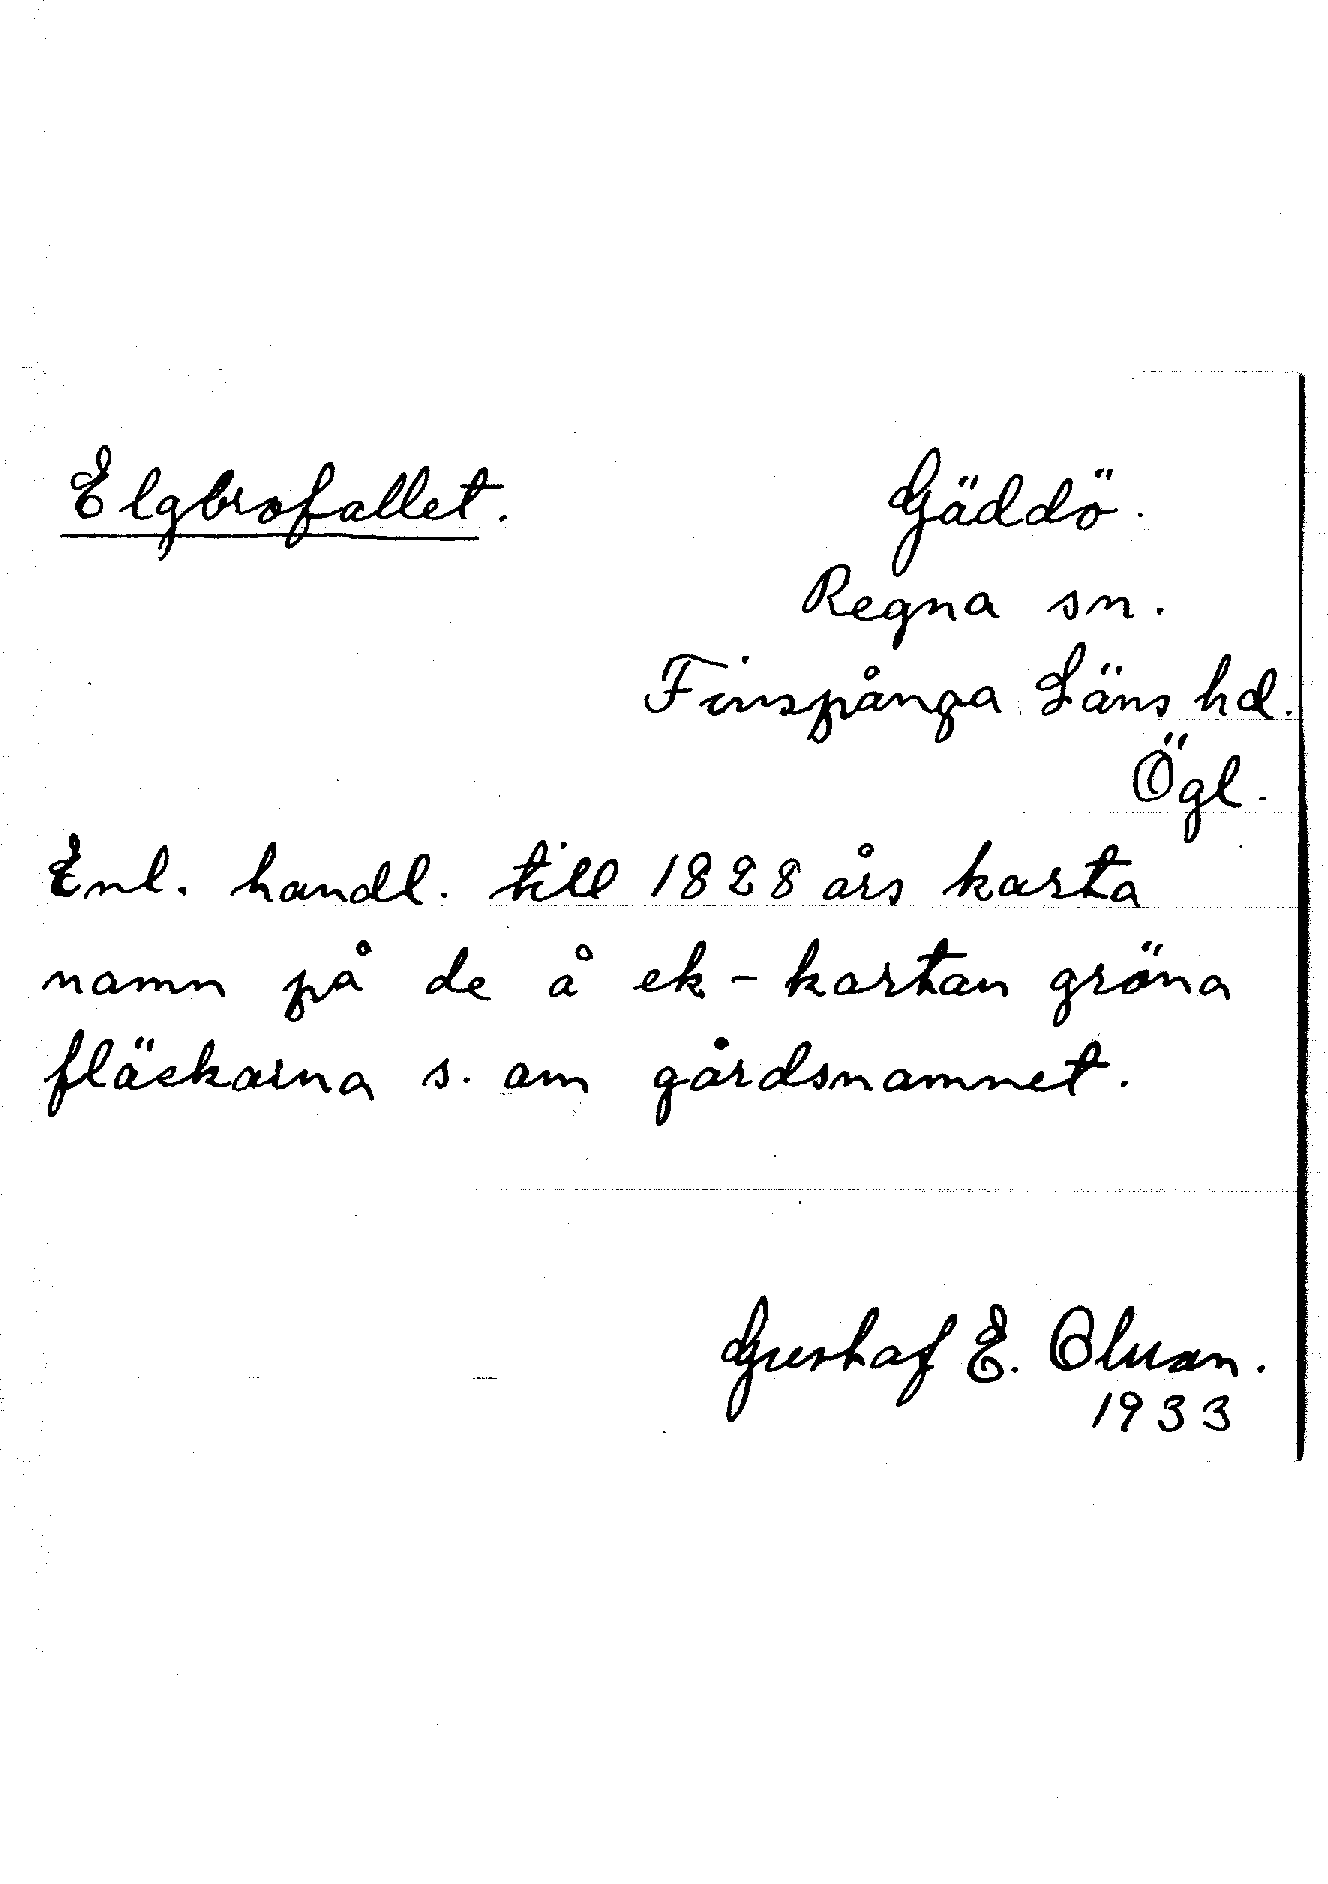 Elgbrofallet.
Gäddö.
Regna sn.
Finspånga Läns hd.
Ögl.
Enl. handl. till 1828 års karta
namn på de å ek-kartan gröna
fläckarna s. om gårdsnamnet.
Gustaf E. Olsson.
1933